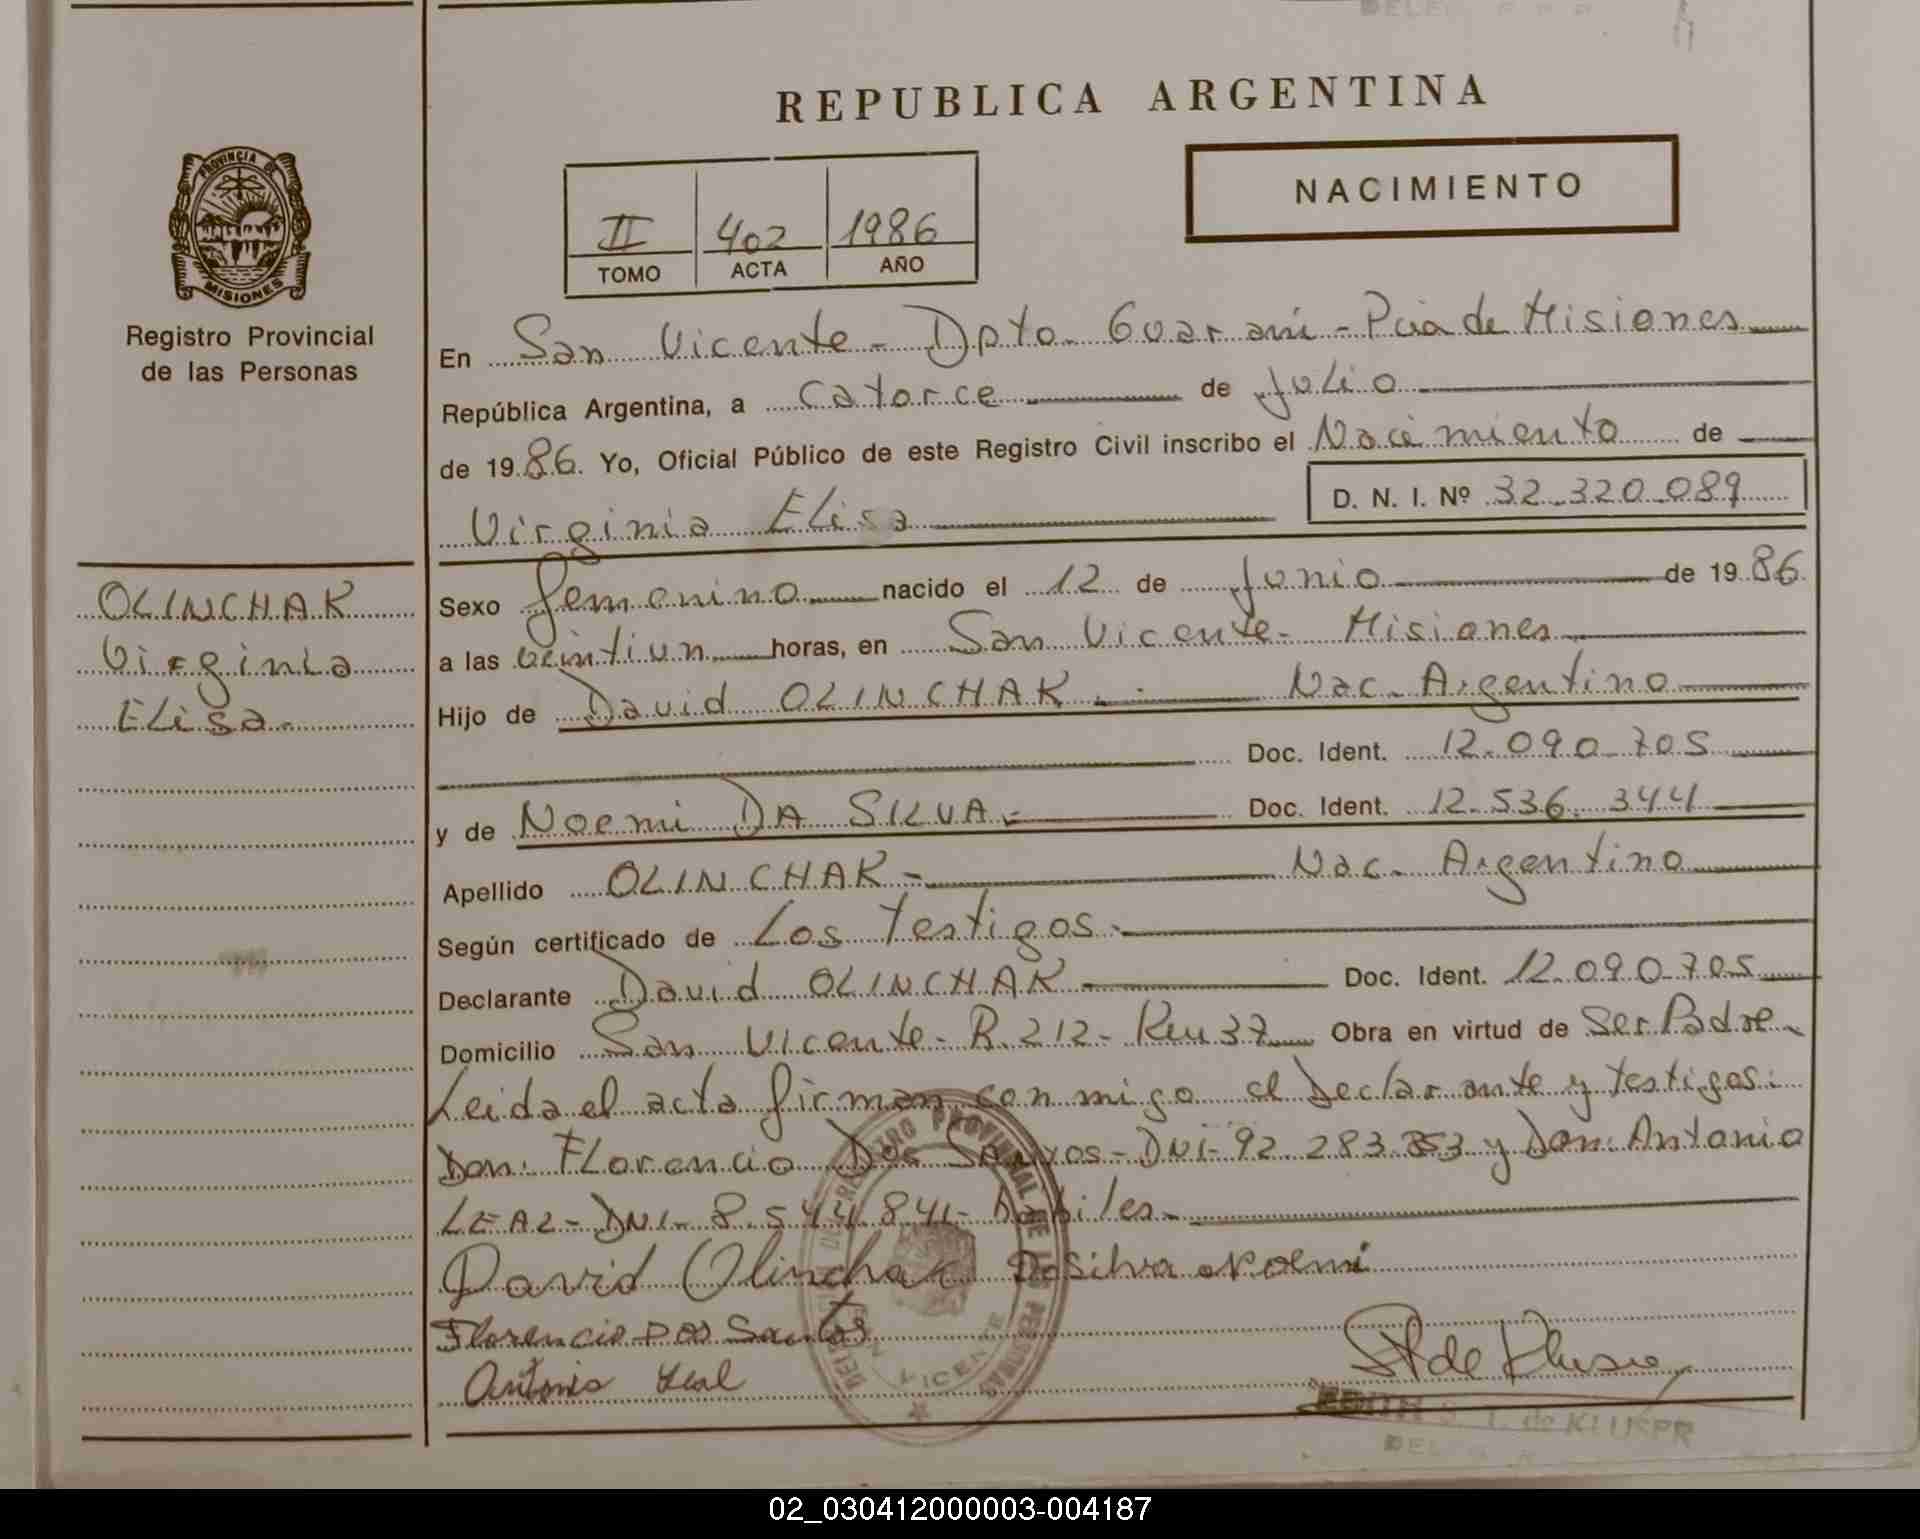 REPUBLICA ARGENTINA
NACIMIENTO
II 402 1986
TOMO ACTA AÑO
PROVINCIA DE
MISIONES
Registro Provincial
de las Personas
OLINCHAK
Virginia
Elisa.
En San Vicente - Dpto. Guarani - Pcia de Misiones
República Argentina, a Catorce de Julio
de 1986. Yo, Oficial Público de este Registro Civil inscribo el Nacimiento de
Virginia Elisa D. N. I. Nº 32.320.089
Sexo femenino nacido el 12 de Junio de 1986.
a las veintiun horas, en San Vicente - Misiones
Hijo de David OLINCHAK. Nac. Argentino
Doc. Ident. 12.090.705
y de Noemi DA SILVA. Doc. Ident. 12.536.344
Apellido OLINCHAK - Nac. Argentino
Según certificado de Los Testigos.
Declarante David OLINCHAK Doc. Ident. 12.090.705
Domicilio San Vicente - R.212 - Km 37 Obra en virtud de Ser Padre -
Leida el acta firman conmigo el Declarante y testigos:
Don: Florencio Dos Santos - DNI - 92.283.353 y Don: Antonio
LEAL - DNI - 8.544.841 - habiles.
David Olinchak Da Silva Noemi
Florencio Dos Santos
Antonio Leal
REGISTRO PROVINCIAL DE LAS PERSONAS
VICENTE
EDITH S. T. de KLUSPR
02_030412000003-004187